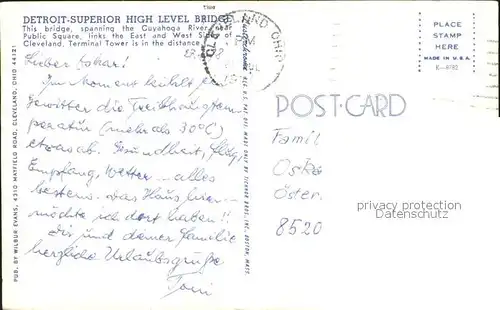 DETROIT-SUPERIOR HIGH LEVEL BRIDGE
This bridge, spanning the Cuyahoga River near
Public Square, links the East and West Side of
Cleveland. Terminal Tower is in the distance.
Lieber Oskar!
Im Moment kühlt ein
Gewitter die Treibhaustem
peratur (mehr als 30°C)
etwas ab. Gesundheit, Flug,
Empfang, Wetter... alles
bestens. das Haus hier...
möchte ich dort haben!!
Dir und deiner Familie
herzliche Urlaubsgrüße
Toni
PUB. BY WILBUR EVANS, 4310 MAYFIELD ROAD, CLEVELAND, OHIO 44121
OHIO
PM
PLACE
STAMP
HERE
MADE IN U.S.A.
POST-CARD
Famil
Oska
Öster.
8520
privacy protection
Datenschutz